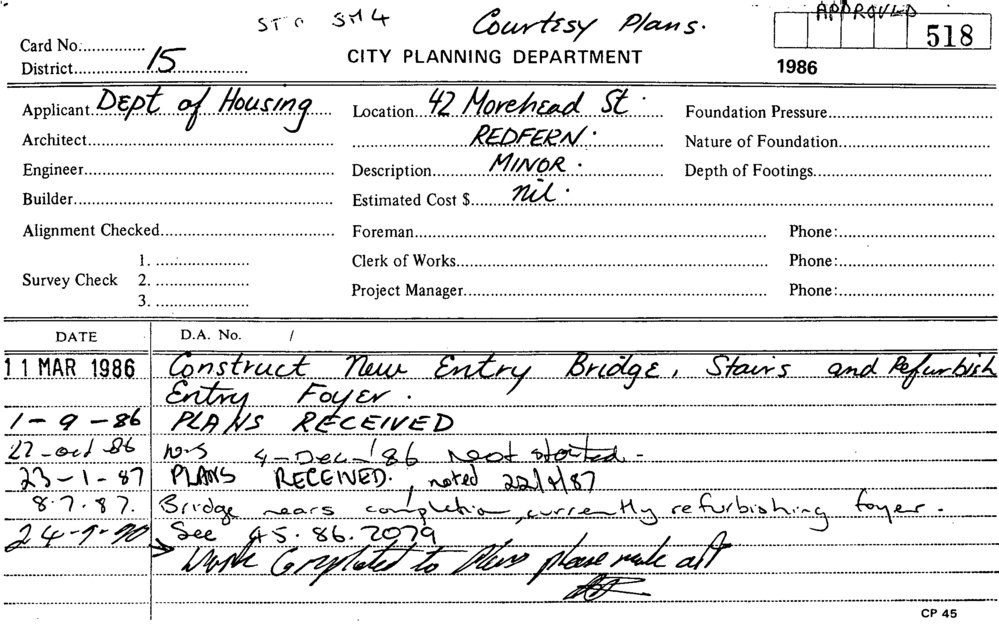 Courtesy Plans. APPROVED
Card No. 518
District 15 CITY PLANNING DEPARTMENT 1986
Applicant Dept of Housing Location 42 Morehead St. Foundation Pressure
Architect REDFERN. Nature of Foundation
Engineer Description MINOR. Depth of Footings
Builder Estimated Cost $ nil.
Alignment Checked Foreman Phone:
1. Clerk of Works Phone:
Survey Check 2.
3. Project Manager Phone:
DATE D.A. No. /
11 MAR 1986 Construct New Entry Bridge, Stairs and Refurbish
Entry Foyer.
1-9-86 PLANS RECEIVED
22-Oct 86 N-S 4-Dec-'86 Not started-
23-1-87 PLANS RECEIVED. noted
8.7.87. Bridge nears completion, currently refurbishing foyer.
See 45.86.2079
Work Completed to Plans please mark off
CP 45